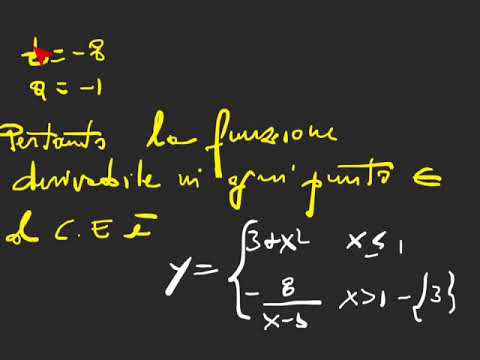 b = -8
a = -1
Pertanto la funzione
derivabile in ogni punto ∈
al C.E è
y = { 3+x² x ≤ 1
-8/(x-3) x>1 - {3}